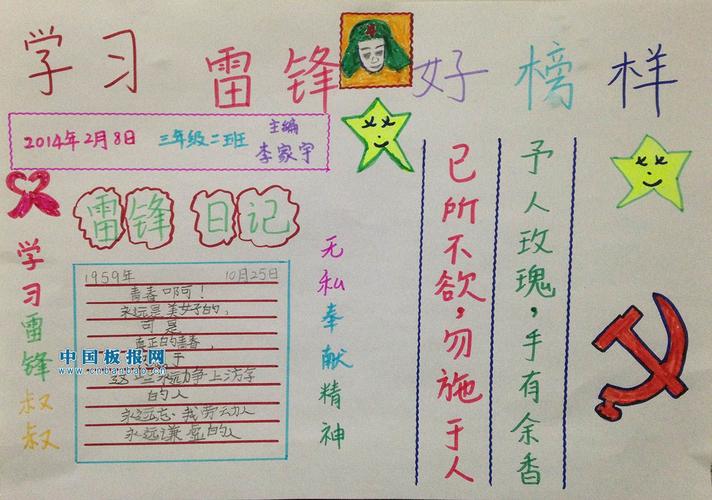 学习雷锋好榜样
2014年2月8日 三年级二班 主编
李家宇
雷锋日记
1959年 10月25日
青春啊!
永远是美好的,
可是
真正的青春,
力争上游
的人
永远忘我劳动人
永远谦虚的人
学习雷锋叔叔
无私奉献精神
己所不欲,勿施于人
予人玫瑰,手有余香
中国板报网
www.cnbanbao.cn